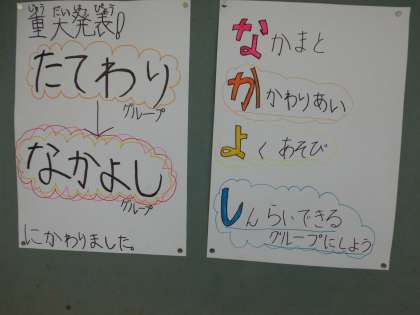 重大発表!
じゅうだいはっぴょう
たてわり
グループ
なかよし
グループ
にかわりました。
なかまと
かかわりあい
よくあそび
しんらいできる
グループにしよう